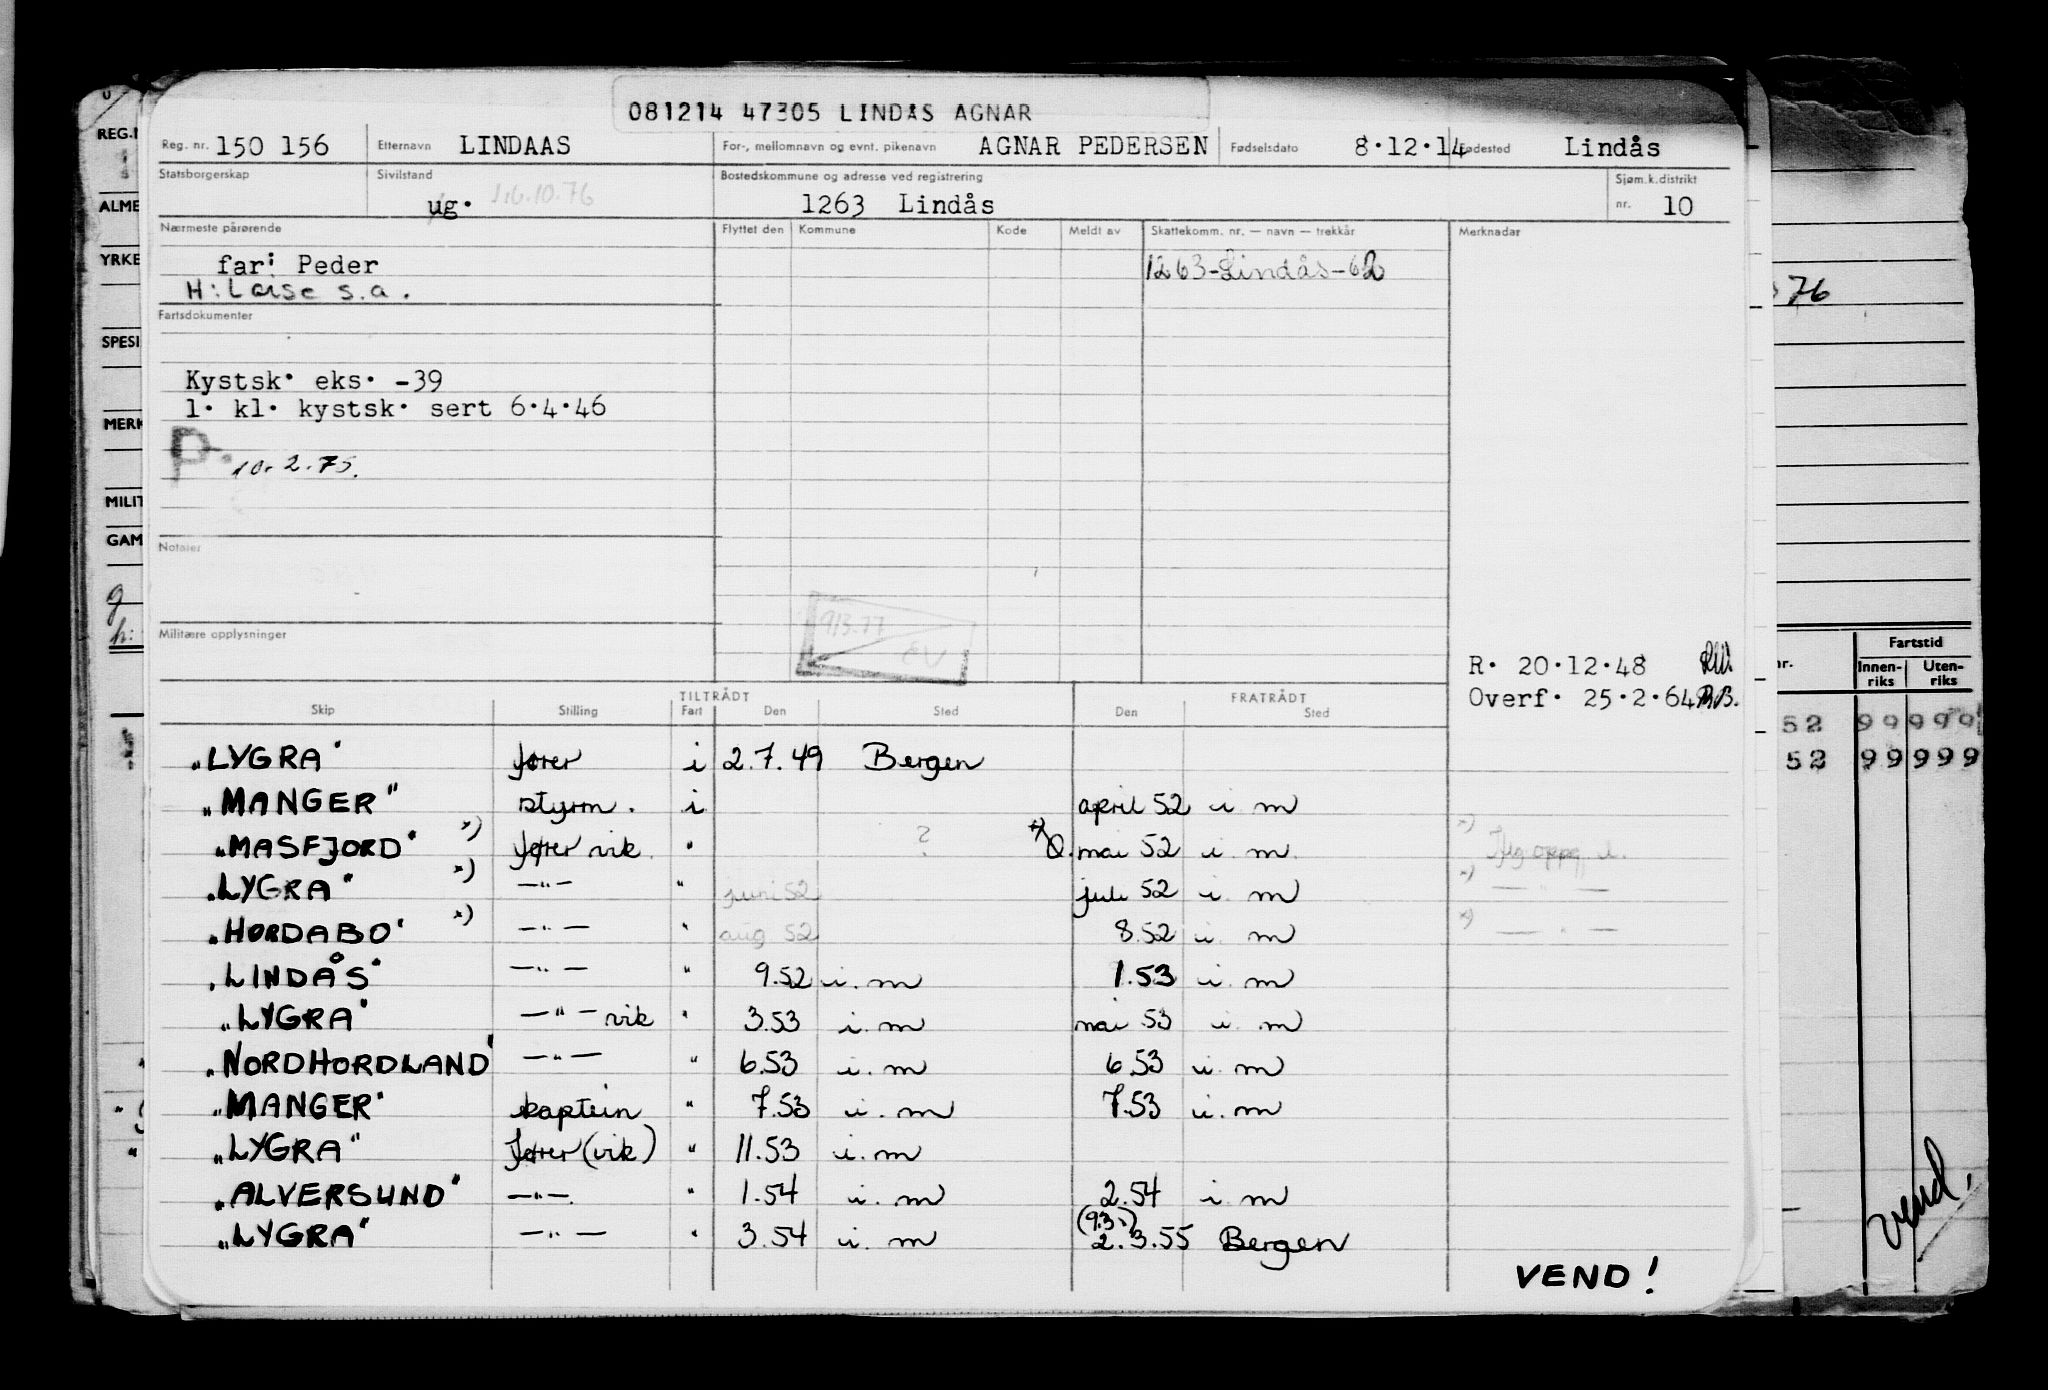 081214 47305 LINDÅS AGNAR
Reg. nr. 150 156 Etternavn LINDAAS For-, mellomnavn og evnt. pikenavn AGNAR PEDERSEN Fødselsdato 8.12.14 Fødested Lindås
Statsborgerskap Sivilstand Bostedskommune og adresse ved registrering Sjøm.k.distrikt
ug. 1263 Lindås nr. 10
Nærmeste pårørende Flyttet den Kommune Kode Meldt av Skattekomm. nr. — navn — trekkår Merknader
far: Peder 1263-Lindås-62
H: Loise s.a.
Fartsdokumenter
Kystsk. eks. -39
1. kl. kystsk. sert 6.4.46
P. 10.2.75.
Notater
Militære opplysninger
R. 20.12.48
Overf. 25.2.64
TILTRÅDT FRATRÅDT
Skip Stilling Fart Den Sted Den Sted
"LYGRA" fører i 2.7.49 Bergen
"MANGER" styrm. i april 52 i. m
"MASFJORD" x) fører vik. " ? x) mai 52 i. m. x)
"LYGRA" x) —"— " juni 52 juli 52 i. m x) — " —
"HORDABO" x) —"— " aug 52 8.52 i. m x) — " —
"LINDÅS" —"— " 9.52 i. m 1.53 i. m
"LYGRA" —"— vik " 3.53 i. m mai 53 i. m
"NORDHORDLAND" —"— " 6.53 i. m 6.53 i. m
"MANGER" kaptein " 7.53 i. m 7.53 i. m
"LYGRA" fører (vik) " 11.53 i. m
"ALVERSUND" —"—. " 1.54 i. m 2.54 i. m
"LYGRA" —"— " 3.54 i. m 2.3.55 Bergen
VEND!
REG.N
ALME
YRKE
SPESI
MERK
MILIT
GAM
76
nr. Fartstid
Innen-riks Uten-riks
52 99 999
52 99 999
vend.